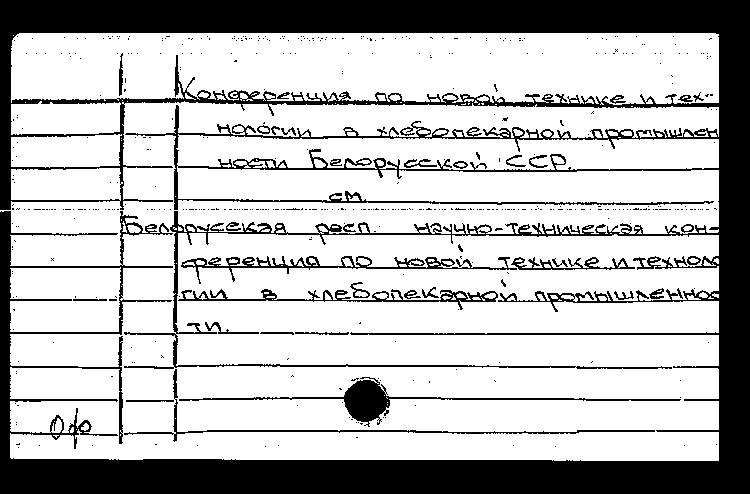 Конференция по новой технике и тех-
нологии в хлебопекарной промышлен
ности Белорусской ССР.
см.
Белорусская респ. научно-техническая кон-
ференция по новой технике и техноло
гии в хлебопекарной промышленнос
ти.